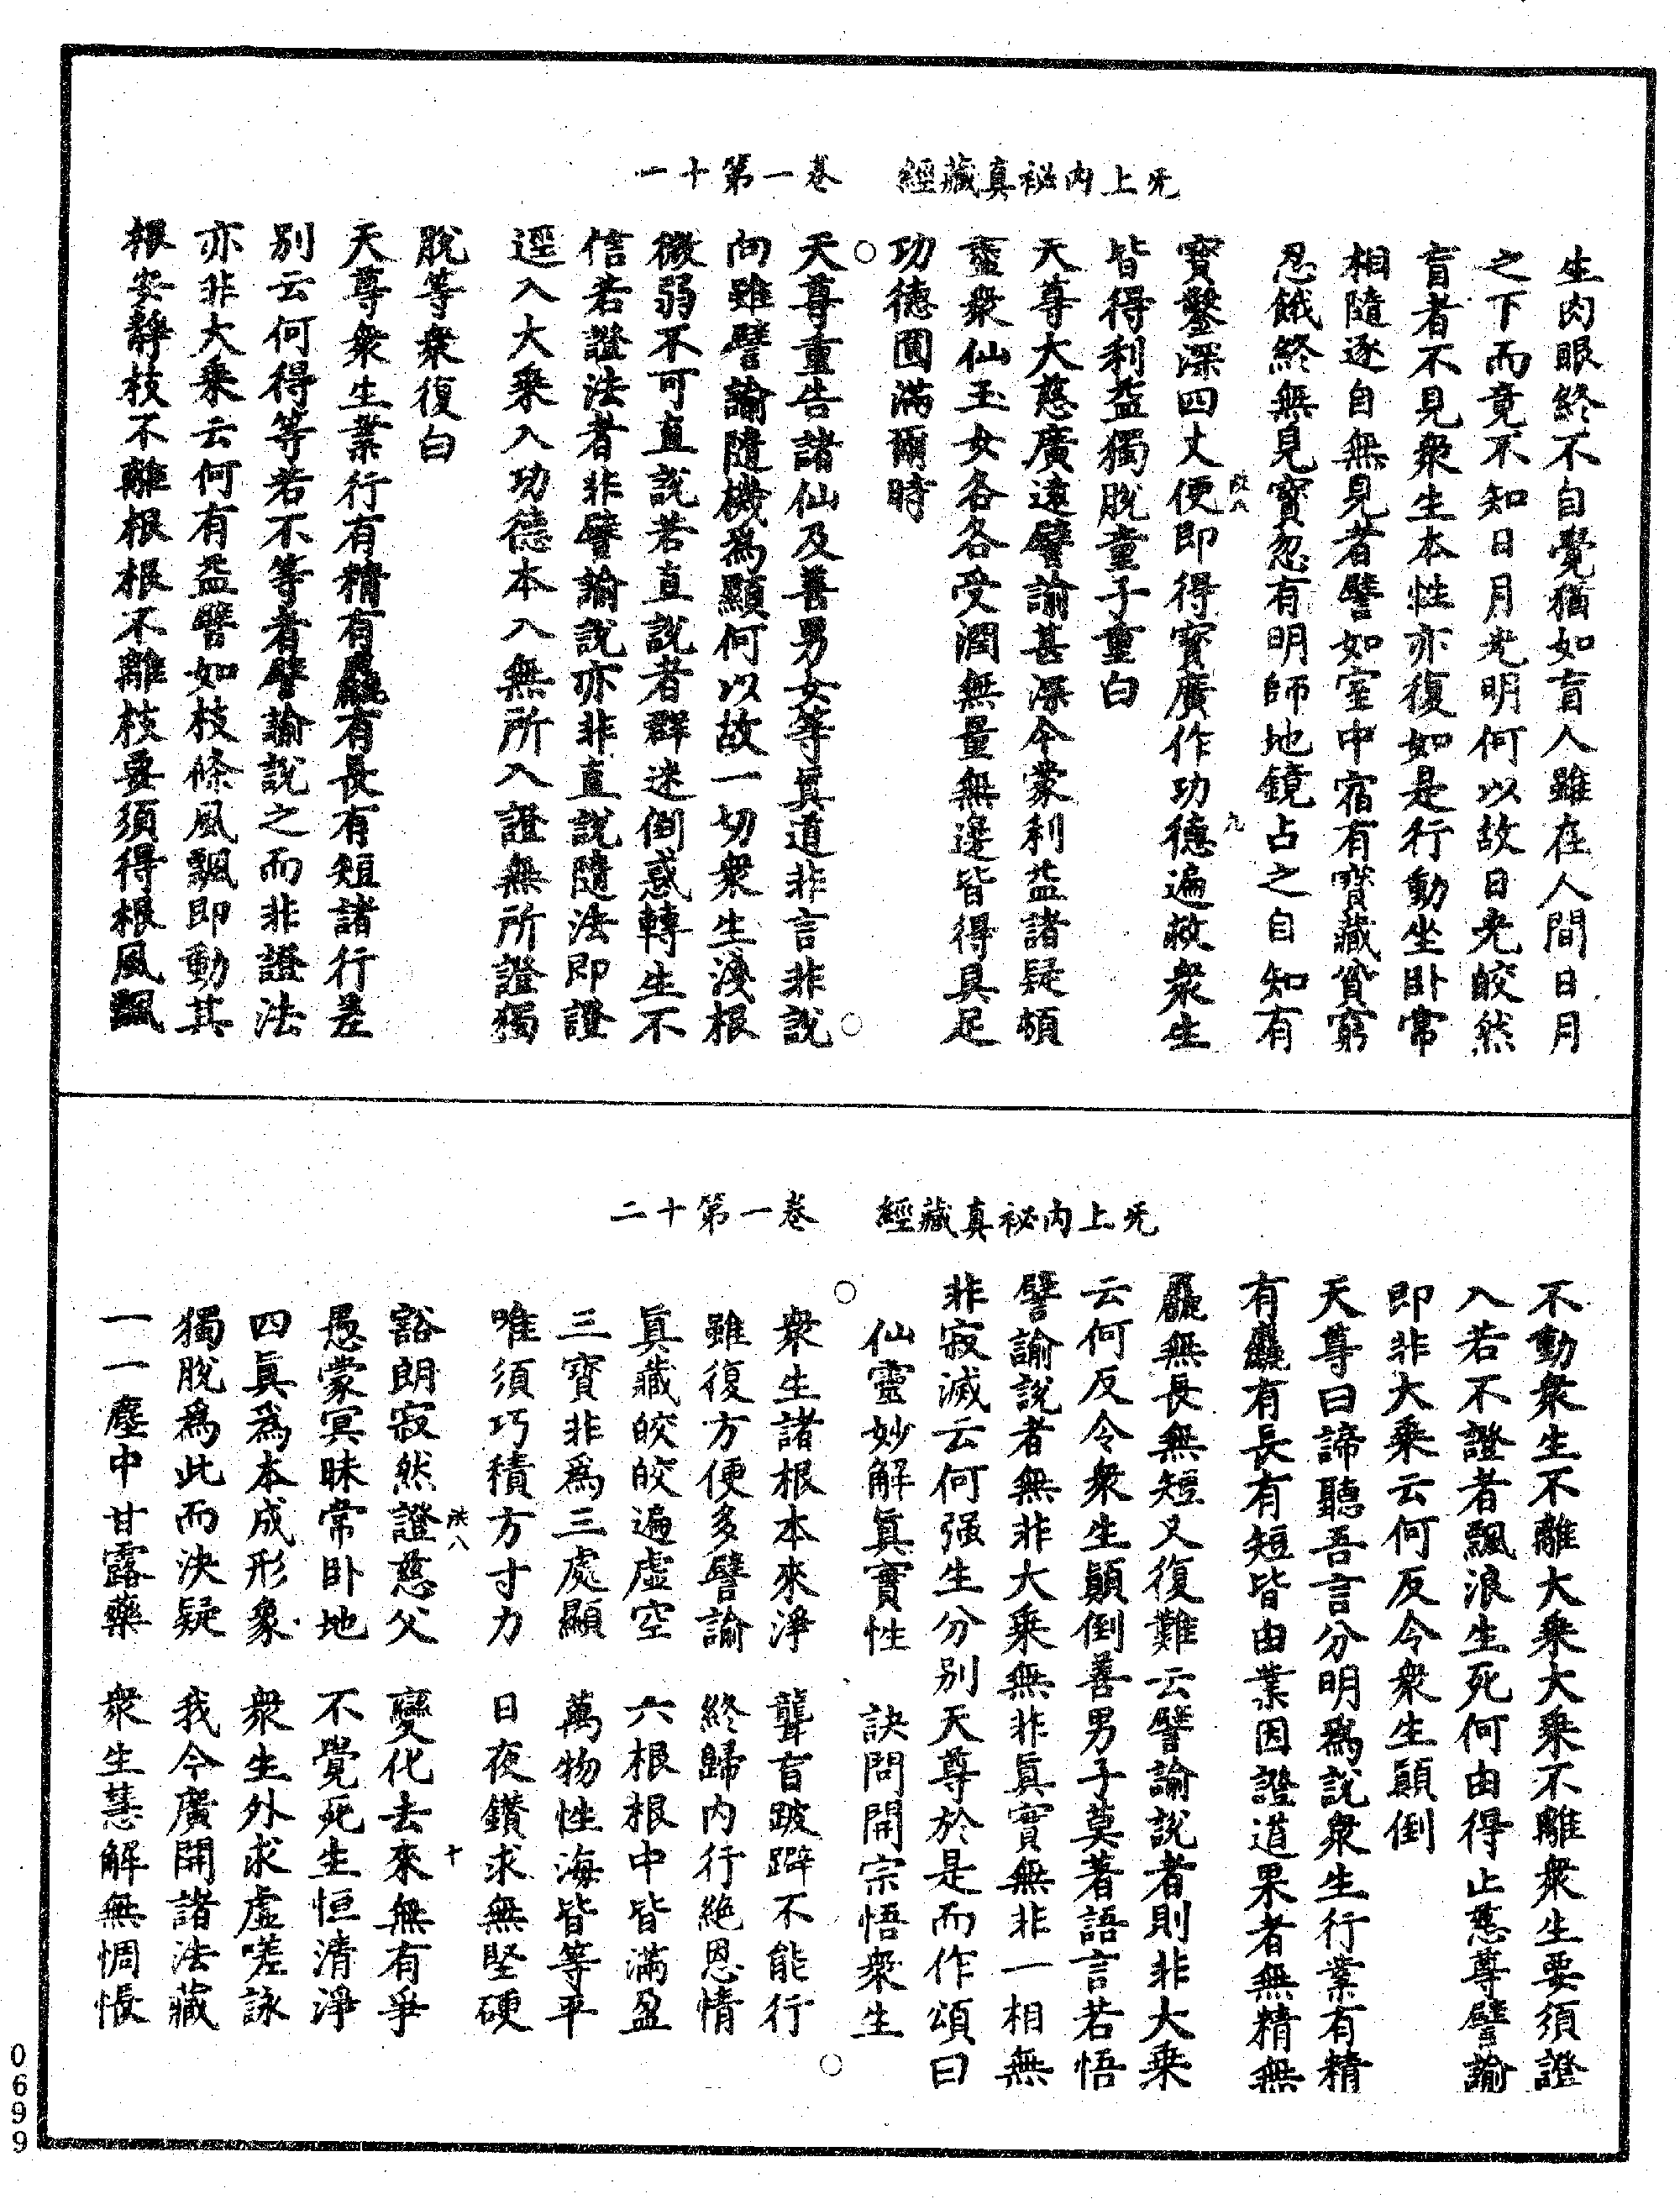 无上內祕真藏經　卷一第十一
生肉眼終不自覺猶如盲人雖在人間日月
之下而竟不知日月光明何以故日光皎然
盲者不見衆生本性亦復如是行動坐卧常
相隨逐自無見者譬如室中宿有寶藏貧窮
忍餓終無見寶忽有明師地鏡占之自知有
寶鑿深四丈便即得寶廣作功德遍救衆生
皆得利益獨脫童子重白
天尊大慈廣遠譬諭甚深今蒙利益諸疑頓
盡衆仙玉女各各受潤無量無邊皆得具足
功德圓滿爾時
天尊重告諸仙及善男女等眞道非言非說
向雖譬諭隨機爲顯何以故一切衆生淺根
微弱不可直說若直說者群迷倒惑轉生不
信若證法者非譬諭說亦非直說隨法即證
逕入大乘入功德本入無所入證無所證獨
脫等衆復白
天尊衆生業行有精有麤有長有短諸行差
別云何得等若不等者譬諭說之而非證法
亦非大乘云何有益譬如枝條風飄即動其
根安靜枝不離根根不離枝要須得根風飄
无上內祕真藏經　卷一第十二
不動衆生不離大乘大乘不離衆生要須證
入若不證者飄浪生死何由得止慈尊譬諭
即非大乘云何反令衆生顚倒
天尊曰諦聽吾言分明爲說衆生行業有精
有麤有長有短皆由業因證道果者無精無
麤無長無短又復難云譬諭說者則非大乘
云何反令衆生顚倒善男子莫著語言若悟
譬諭說者無非大乘無非眞實無非一相無
非寂滅云何强生分別天尊於是而作頌曰
仙靈妙解眞實性　訣問開宗悟衆生
衆生諸根本來淨　聾盲跛躃不能行
雖復方便多譬諭　終歸內行絕恩情
眞藏皎皎遍虛空　六根根中皆滿盈
三寶非爲三處顯　萬物性海皆等平
唯須巧積方寸力　日夜鑽求無堅硬
豁朗寂然證慈父　變化去來無有爭
愚蒙冥昧常卧地　不覺死生恒清淨
四眞爲本成形象　衆生外求虛嗟詠
獨脫爲此而決疑　我今廣開諸法藏
一一塵中甘露藥　衆生慧解無惆悵
0699